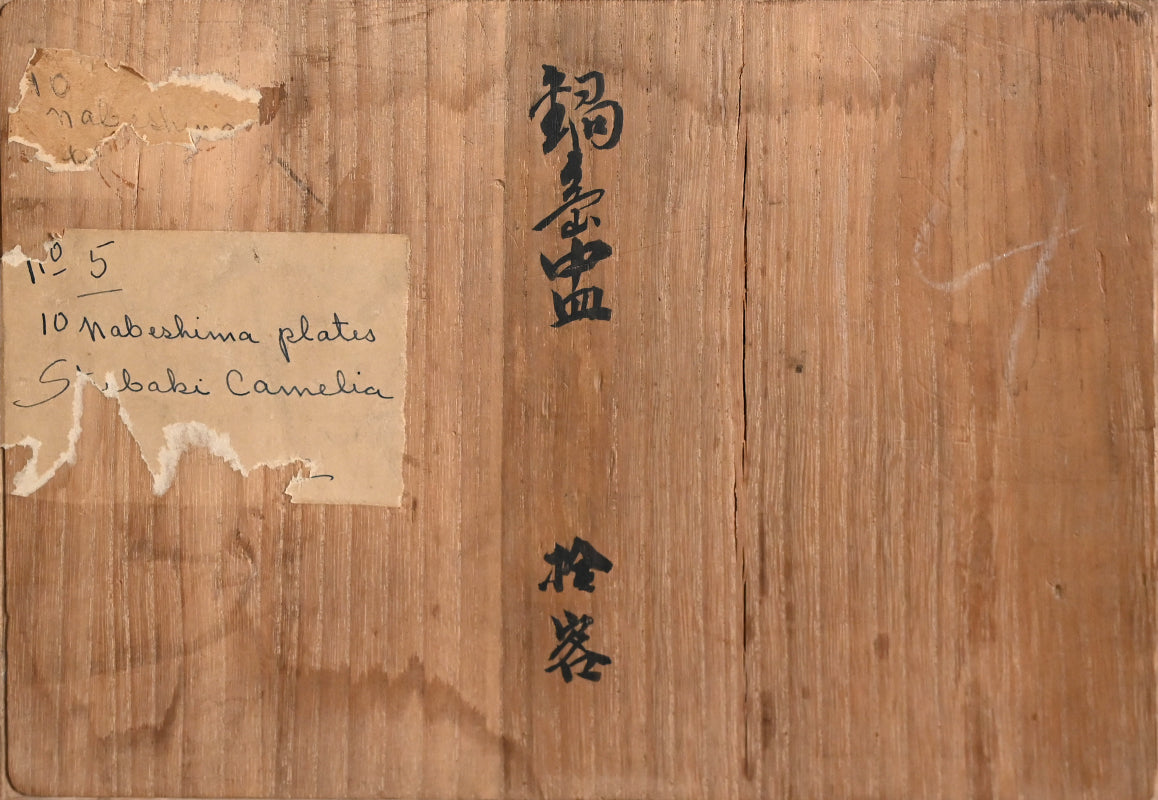 10
Nabeshima
Nº 5
10 Nabeshima plates
Camelia
鍋島中皿
拾客